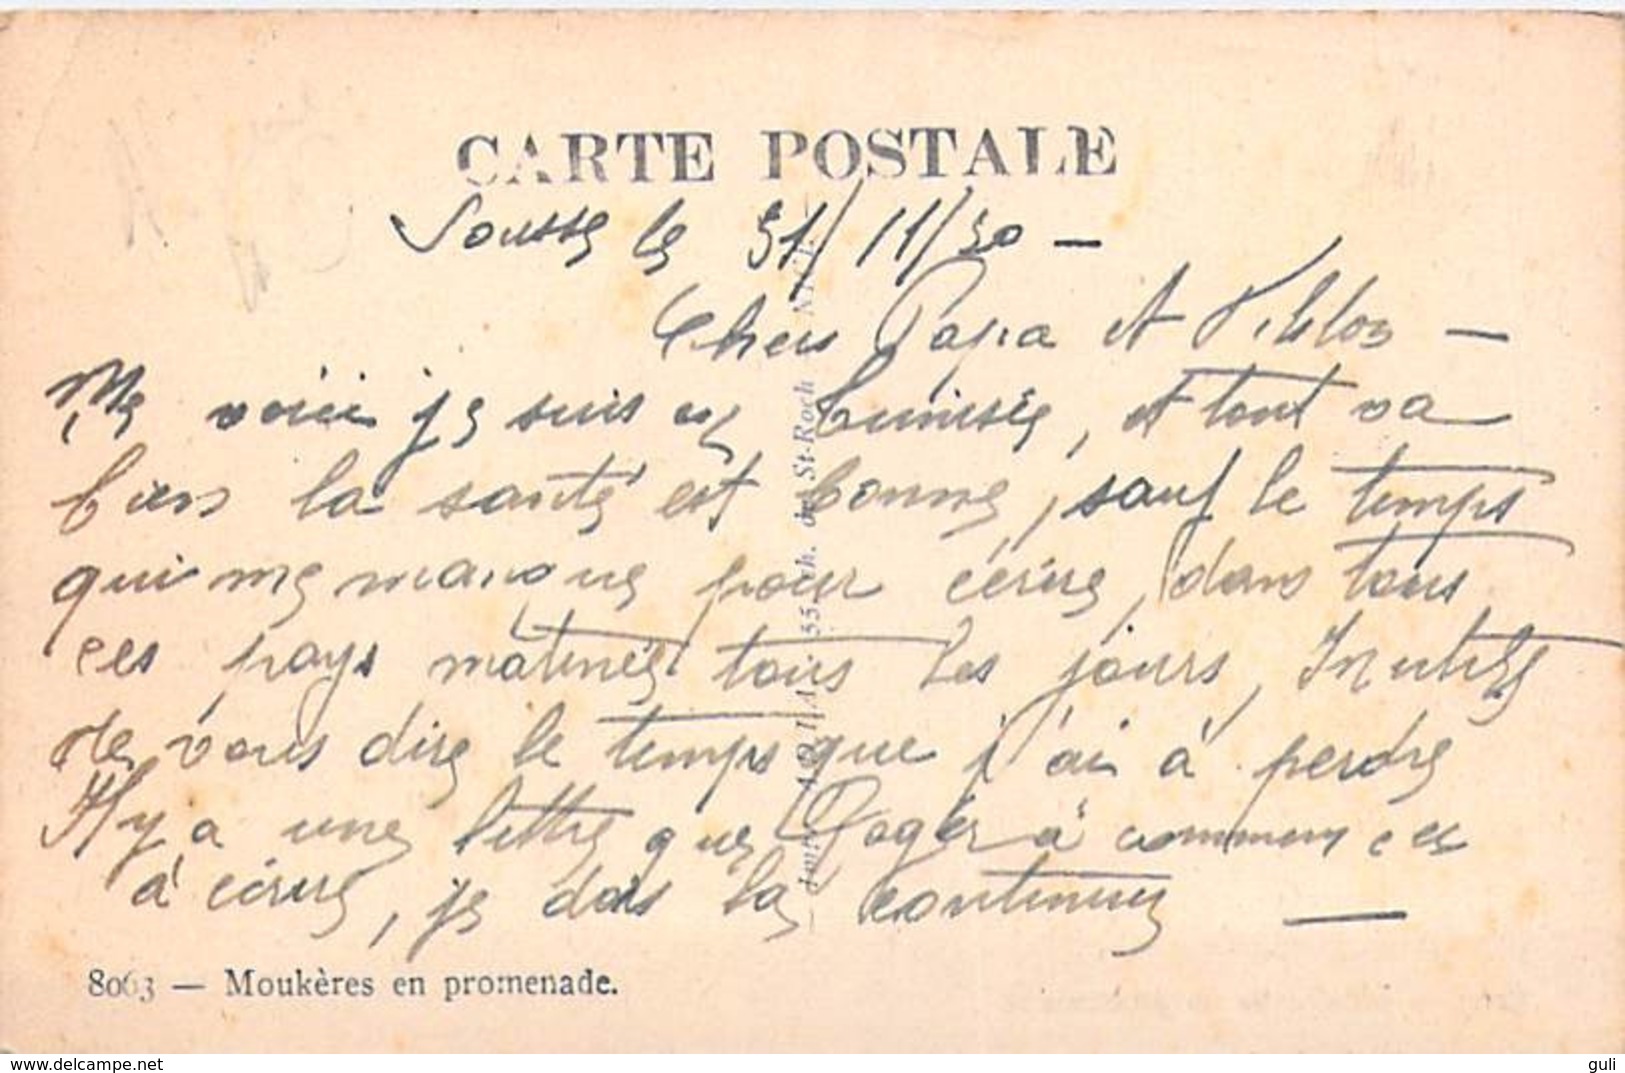 CARTE POSTALE
Sousse le 31/11/30 —
Chers Papa et —
Me voici je suis en Tunisie, et tout va
bien la santé est bonne, sauf le temps
qui me manque pour écrire, dans tous
ces pays matinée tous les jours, Inutile
de vous dire le temps que j'ai à perdre
Il y a une lettre que Roger à commencer
à écrire, je dois la continuer —
Imp. 55, ch. de St-Roch
8063 — Moukères en promenade.
www.delcampe.net
guli